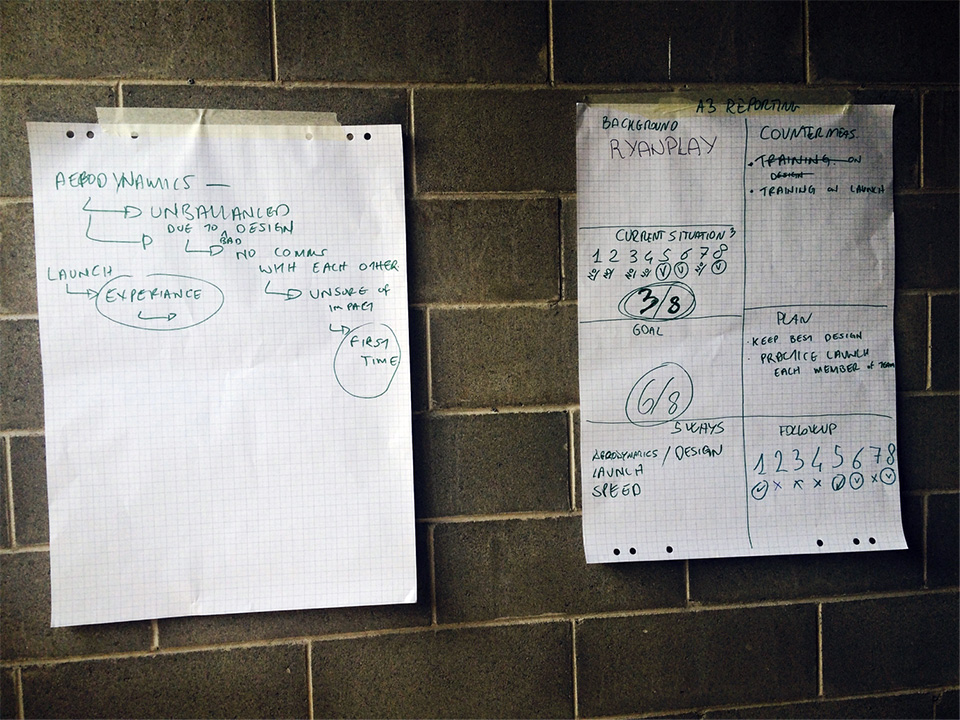 AERODYNAMICS —
UNBALLANCED
DUE TO BAD DESIGN
NO COMMS
WITH EACH OTHER
UNSURE OF
IMPACT
FIRST
TIME
LAUNCH
EXPERIANCE
A3 REPORTING
BACKGROUND
RYANPLAY
CURRENT SITUATION 3
1 2 3 4 5 6 7 8
3/8
GOAL
6/8
5 WAYS
AERODYNAMICS / DESIGN
LAUNCH
SPEED
COUNTERMEAS.
• TRAINING ON
DESIGN
• TRAINING ON LAUNCH
PLAN
· KEEP BEST DESIGN
· PRACTICE LAUNCH
EACH MEMBER of TEAM
FOLLOWUP
1 2 3 4 5 6 7 8